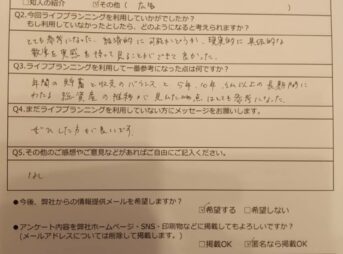 □知人の紹介 ☑その他( 広告
Q2.今回ライフプランニングを利用していかがでしたか？
もし利用していなかったとしたら、どのようになると考えられますか？
とても参考になった。経済的に可能かどうか、現実的に具体的な
数字を実感を持って見ることができて良かった。
Q3.ライフプランニングを利用して一番参考になった点は何ですか？
年間の貯蓄と収支のバランスと 5年、10年、それ以上の長期間に
わたる 総資産の推移が見れた点はとても参考になった。
Q4.まだライフプランニングしていない方にメッセージをお願いします。
ぜひした方が良いです。
Q5.その他のご感想やご意見などがあればご自由にご記入ください。
なし
●今後、弊社からの情報提供メールを希望しますか？
☑希望する □希望しない
●アンケート内容を弊社ホームページ・SNS・印刷物などに掲載してもよろしいですか？
(メールアドレスについては削除して掲載します。)
□掲載OK ☑匿名なら掲載OK